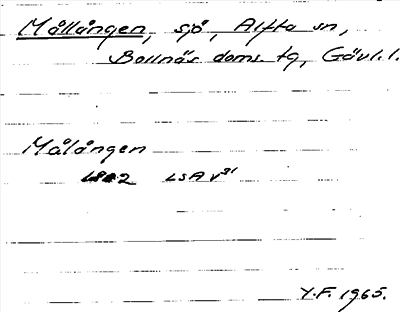 Mållången, sjö, Alfta sn,
Bollnäs doms. tg, Gävl. l.
Målången
1802 LSA V 31
Y.F. 1965.